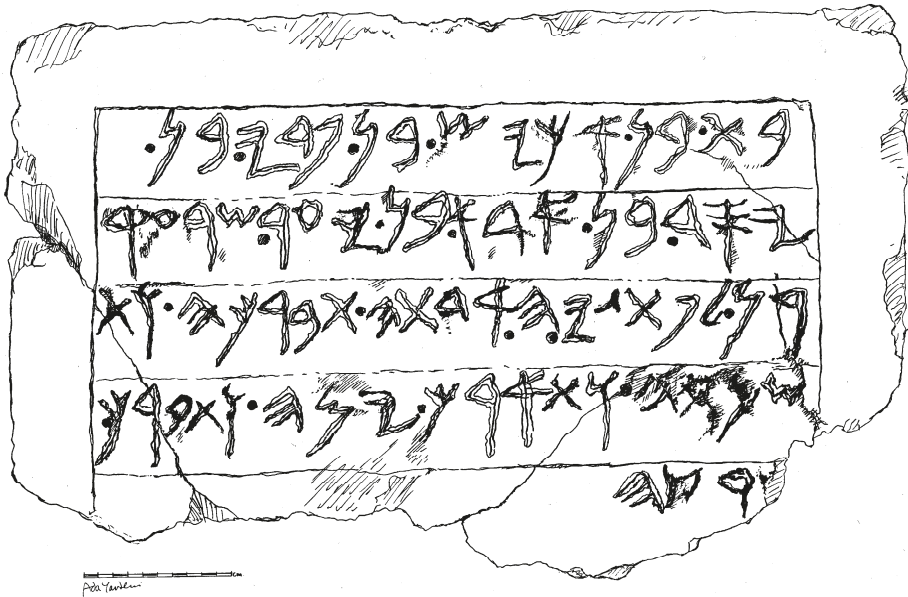 𐤁𐤕𐤟𐤁𐤍𐤟𐤀𐤊𐤉𐤔𐤟𐤁𐤍𐤟𐤐𐤃𐤉𐤟𐤁𐤍𐤟
𐤉𐤎𐤃𐤟𐤁𐤍𐤟𐤀𐤃𐤀𐤟𐤁𐤍𐤟𐤉𐤏𐤓𐤟𐤔𐤓𐤏𐤒
𐤓𐤍𐤟𐤋𐤐𐤕𐤂𐤉𐤄𐤟𐤀𐤃𐤕𐤄𐤟𐤕𐤁𐤓𐤊𐤄𐤟𐤅𐤕
𐤔𐤌𐤓𐤄𐤟𐤅𐤕𐤀𐤓𐤊𐤟𐤉𐤌𐤄𐤟𐤅𐤕𐤁𐤓𐤊𐤟
𐤓𐤑𐤄
cm
Ada Yardeni